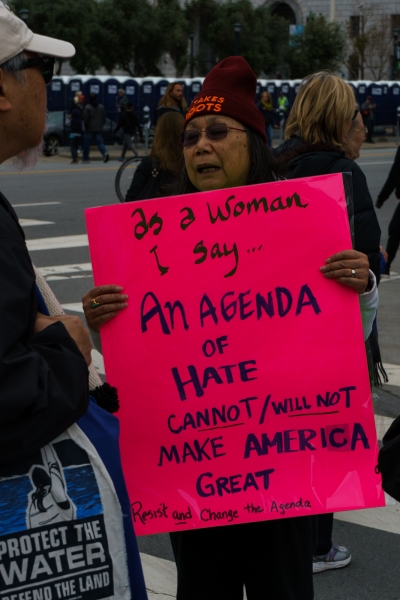 TAKES
ROOTS
as a Woman
I say...
AN AGENDA
OF
HATE
CANNOT/WILL NOT
MAKE AMERICA
GREAT
Resist and Change the Agenda
PROTECT THE
WATER
DEFEND THE LAND